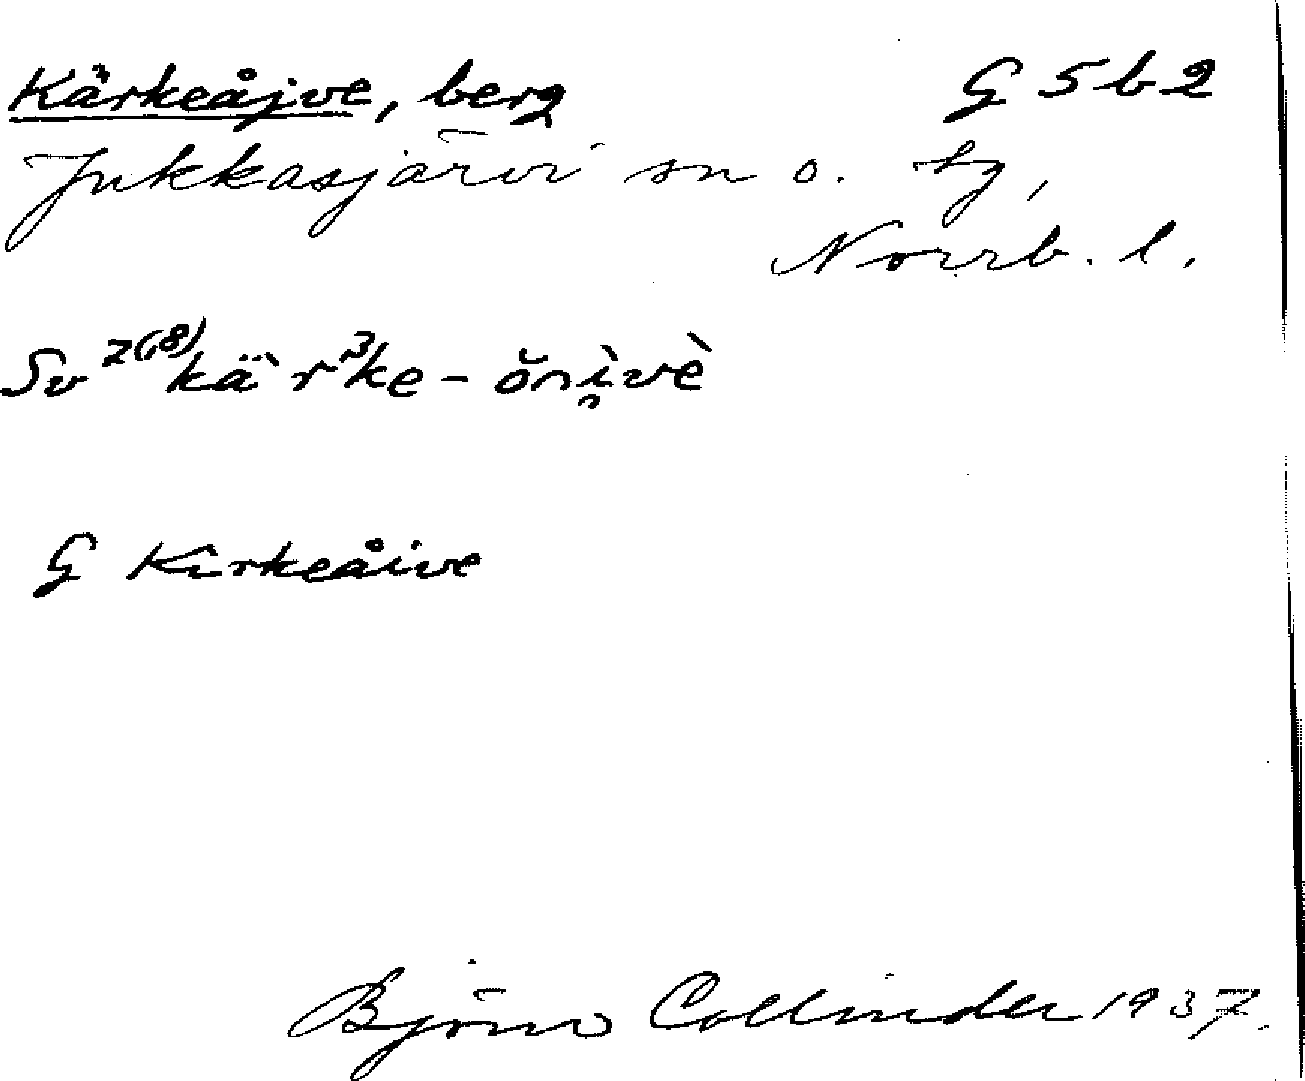 Kärkeåjve, berg G 5 b 2
Jukkasjärvi sn o. tg,
Norrb. l.
Sv 2(,8) kä̀r³ke-ŏnì̯vè
G Kirkeåive
Björn Collinder 1937.